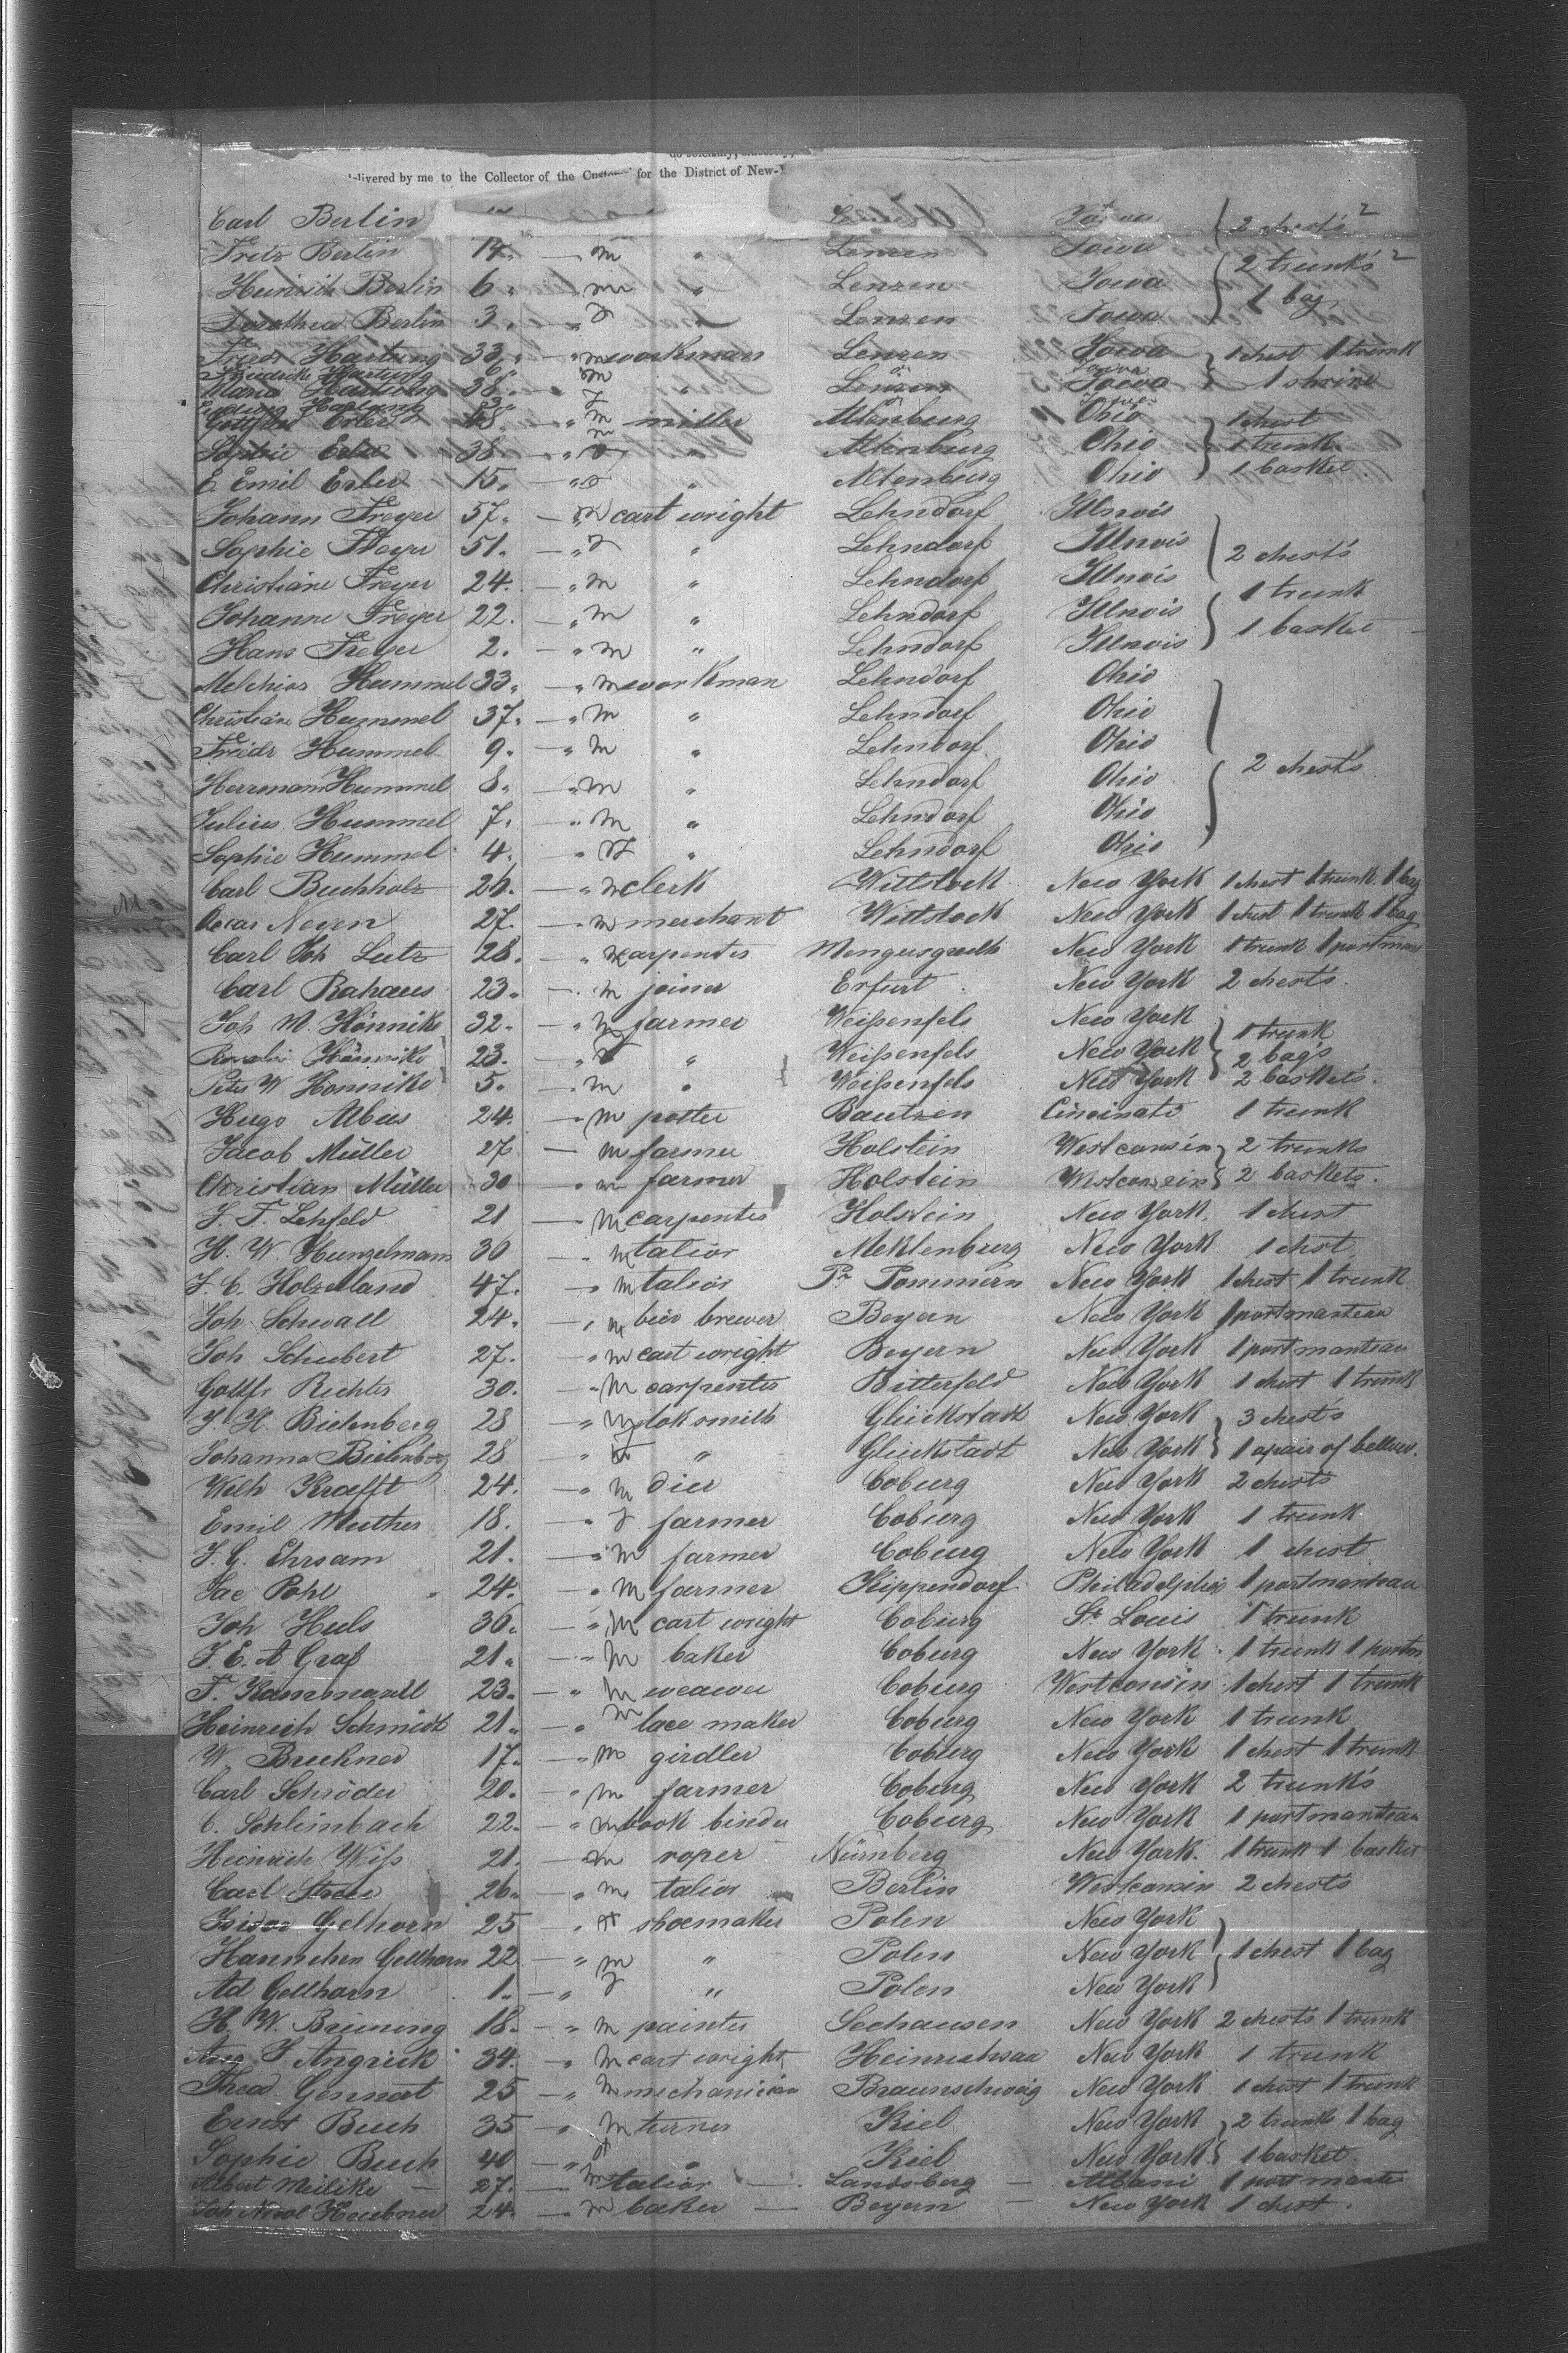 do solemnly,
delivered by me to the Collector of the Customs for the District of New-Y
Carl Berlin Iowa 2 chest's 2
Fritz Berlin 14. — m " Lenzen Iowa
Heinrich Berlin 6. m " Lenzen Iowa 2 trunk's 2
Dorothea Berlin 3. " f " Lenzen Iowa 1 bag
Friedr Hartung 33. — " m workman Lenzen Iowa 1 chest 1 trunk
Friedrike Hartung 6 m Iowa
Maria Hartung 38. f Lenzen Iowa 1 shrine
Hartung 3
Gottfried Erler 48. — " m miller Altenburg Ohio 1 chest
Sophie Erler 38. — " f " Altenburg Ohio 1 trunk
E. Emil Erler 15. — " " Altenburg Ohio 1 basket
Johann Freyer 57. — m cart wright Lehndorf Illnois
Sophie Freyer 51. — " f " Lehndorf Illnois 2 chest's
Christiane Freyer 24. — " m " Lehndorf Illnois
Johanne Freyer 22. — " m " Lehndorf Illnois 1 trunk
Hans Freyer 2. — " m " Lehndorf Illnois 1 basket
Melchior Hummel 33. — " m workman Lehndorf Ohio
Christiane Hummel 37. — " m " Lehndorf Ohio
Friedr Hummel 9. — " m " Lehndorf Ohio
Herrmann Hummel 8. — " m " Lehndorf Ohio 2 chest's
Julius Hummel 7. — " m " Lehndorf Ohio
Sophie Hummel 4. — " f " Lehndorf Ohio
Carl Buchholz 26. — " m clerk Wittstock New York 1 chest 1 trunk 1 bag
Oscar Neyen 27. — m merchant Wittstock New York 1 chest 1 trunk 1 bag
Carl Joh Lutz 28. — " m carpenter Mengersgreuth New York 1 trunk 1 portman
Carl Rahaus 23. — m joiner Erfurt New York 2 chest's.
Joh M. Hönnike 32. — " m farmer Weißenfels New York 1 trunk
Hönnike 23. — " f " Weißenfels New York 2 bags
Peter W Honnike 5. — m " Weißenfels New York 2 basket's.
Hugo Albus 24. — m potter Bautzen Cincinati 1 trunk
Jacob Müller 27 — m farmer Holstein Westconsin 2 trunks
Christian Müller 30 m farmer Holstein Westconsin 2 baskets.
J. F. Lehfeld 21 — m carpenter Holstein New York. 1 chest
H. W. Hunzelmann 30 — m talior Meklenburg New York 1 chest
J. C. Holzelland 47. — m talior Pr Pommern New York 1 chest 1 trunk
Joh Schwall 24. — m bier brewer Beyern New York 1 portmanteau
Joh Schubert 27. — " m cart wright Beyern New York 1 portmanteau
Gottfr Richter 30. — " m carpenter Bitterfeld New York 1 chest 1 trunk
J. H. Bielenberg 28 — " m loksmith Glückstadt New York 3 chest's
Johanna Bielenberg 28 " f " Glückstadt New York 1 apair of bellows.
Wilh Krafft 24. — m dier Coburg New York 2 chests
Emil Muther 18. — f farmer Coburg New York 1 trunk
J. G. Ehrsam 21. — m farmer Coburg New York 1 chest
Jac Pohl 24. — m farmer Kippendorf Philadelphia 1 portmanteau
Joh Huls 36. — " m cart wright Coburg St Louis 1 trunk
J. E. A Graf 21. — " m baker Coburg New York 1 trunk 1 portm
F. Kammarell 23. — " m weawer Coburg Westconsin 1 chest 1 trunk
Heinreich Schmidt 21. — " m lace maker Coburg New York 1 trunk
W Bruckner 17. — " m girdler Coburg New York 1 chest 1 trunk
Carl Schröder 20. — " m farmer Coburg New York 2 trunk's
C. Schleimbach 22. — " m book binder Coburg New York 1 portmanteau
Heinrich Wiß 21. — m roper Nürnberg New York. 1 trunk 1 basket
Carl 26. — " m talior Berlin Westconsin 2 chests
Isidor Gelhorn 25 — " shoemaker Polen New York
Hannchen Gellhorn 22 — " m " Polen New York 1 chest 1 bag
Ad Gellhorn 1. — " f " Polen New York
H. W. Bruning 18. — " m painter Seehausen New York 2 chests 1 trunk
Aug F. Angrick 34. — " m cart wright Heinrichsau New York 1 trunk
Theod. Gennert 25 — " m mechanician Braunschweig New York 1 chest 1 trunk
Ernst Buch 35 — " m turner Kiel New York 2 trunks 1 bag
Sophie Buch 40 — " f " Kiel New York 1 basket
Albert Meilike — 27. — m talior — Landsberg — Albani 1 portmante
Joh Heubner 24. — m baker — Beyern — New York 1 chest.